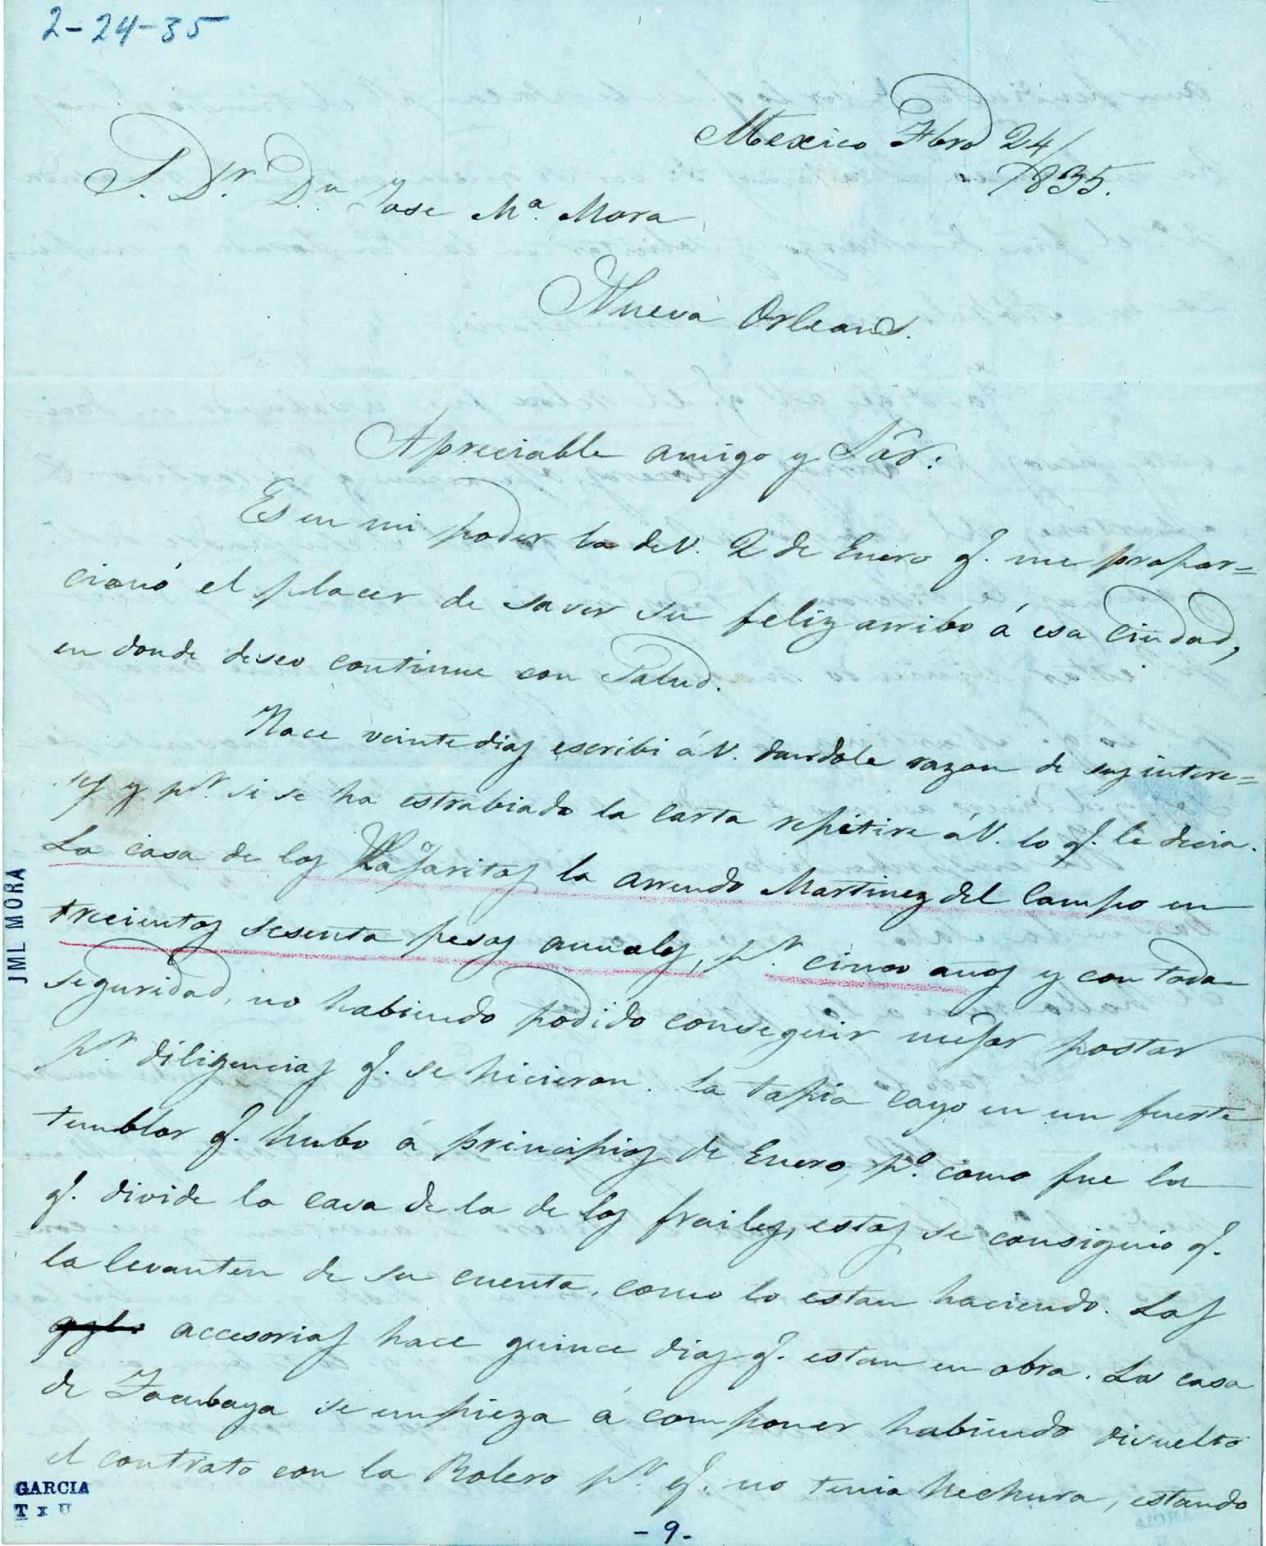 2-24-35
Mexico Fbro 24/
1835.
S. Dr. Dn Jose Ma. Mora
Nueva Orleans.
Apreciable amigo y Sor:
Es en mi poder la de V. 2 de Enero q. me propor=
cionó el placer de saver su feliz arribo á esa Ciudad,
en donde deseo continue con Salud.
Hace veinte dias escribi á V. dandole razon de sus intere=
ses y pr. si se ha estrabiado la carta repitire á V. lo q. le decia.
La casa de los Pajaritos la arrendo Martinez del Campo en
trecientos sesenta pesos anuales, pr. cinco años y con toda
seguridad, no habiendo podido conseguir mejor postor
pr. diligencias q. se hicieron. La tapia cayo en un fuerte
temblor q. hubo á principios de Enero, po. como fue la
q. divide la casa de la de los frailes, estos se consiguio q.
la levanten de su cuenta, como lo estan haciendo. Las
accesorias hace quince dias q. estan en obra. La casa
de Tacubaya se empieza á componer habiendo disuelto
el contrato con la Bolero pr. q. no tenia hechura, estando
JML MORA
GARCIA
T x U
- 9 -